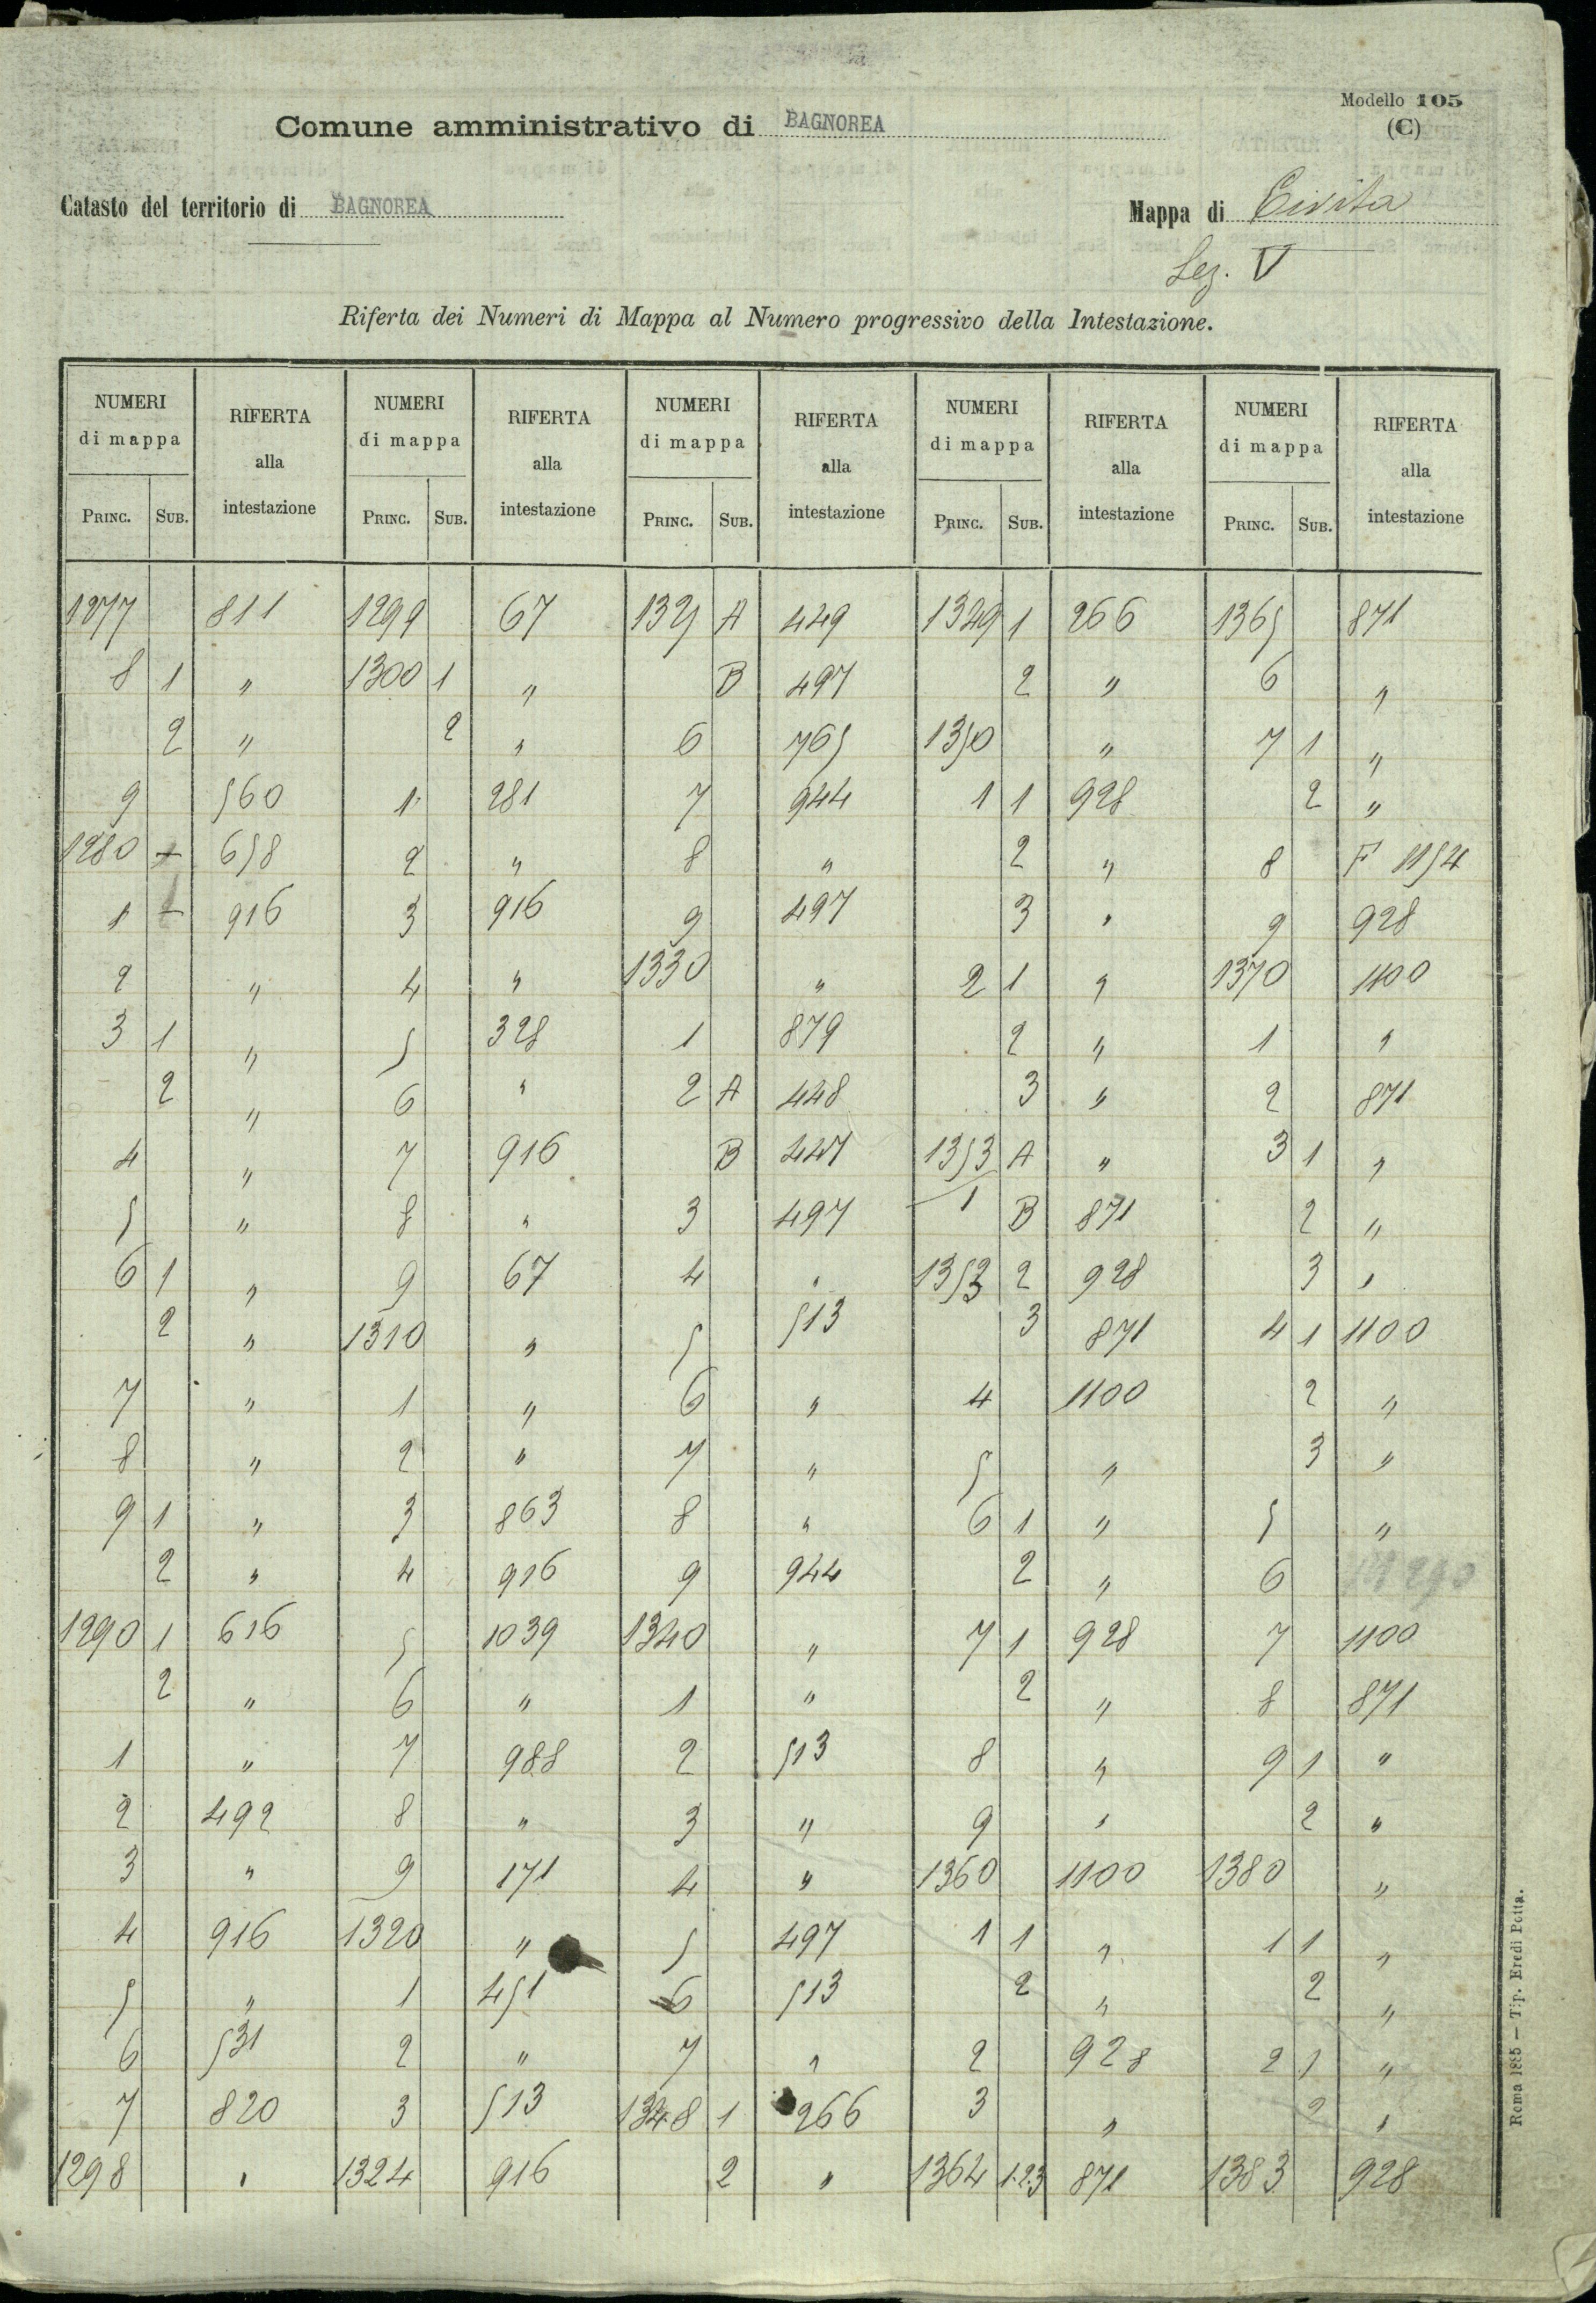 Modello 105
(C)
Comune amministrativo di BAGNOREA
Catasto del territorio di BAGNOREA
Mappa di Civita
Sez. V
Riferta dei Numeri di Mappa al Numero progressivo della Intestazione.
NUMERI di mappa RIFERTA alla intestazione NUMERI di mappa RIFERTA alla intestazione NUMERI di mappa RIFERTA alla intestazione NUMERI di mappa RIFERTA alla intestazione NUMERI di mappa RIFERTA alla intestazione
PRINC. SUB. PRINC. SUB. PRINC. SUB. PRINC. SUB. PRINC. SUB.
1277 811 1299 67 1325 A 449 1349 1 266 1365 871
8 1 " 1300 1 " B 497 2 " 6 "
2 " 2 " 6 765 1350 " 7 1 "
9 560 1 281 7 944 1 1 928 2 "
1280 + 658 2 " 8 " 2 " 8 F 1154
1 + 916 3 916 9 497 3 " 9 928
2 " 4 " 1330 " 2 1 " 1370 1100
3 1 " 5 328 1 879 2 " 1 "
2 " 6 " 2 A 448 3 " 2 871
4 " 7 916 B 447 1353 A " 3 1 "
5 " 8 " 3 497 1 B 871 2 "
6 1 " 9 67 4 " 1353 2 928 3 "
2 " 1310 " 5 513 3 871 4 1 1100
7 " 1 " 6 " 4 1100 2 "
8 " 2 " 7 " 5 " 3 "
9 1 " 3 863 8 " 6 1 " 5 "
2 " 4 916 9 944 2 " 6
1290 1 616 5 1039 1340 " 7 1 928 7 1100
2 " 6 " 1 " 2 " 8 871
1 " 7 988 2 513 8 " 9 1 "
2 492 8 " 3 " 9 " 2 "
3 " 9 171 4 " 1360 1100 1380 "
4 916 1320 " 5 497 1 1 " 1 1 "
5 " 1 451 6 513 2 " 2 "
6 531 2 " 7 " 2 928 2 1 "
7 820 3 513 1348 1 266 3 " 2 "
1298 " 1324 916 2 " 1364 1.2.3 871 1383 928
Roma 1885 — Tip. Eredi Botta.